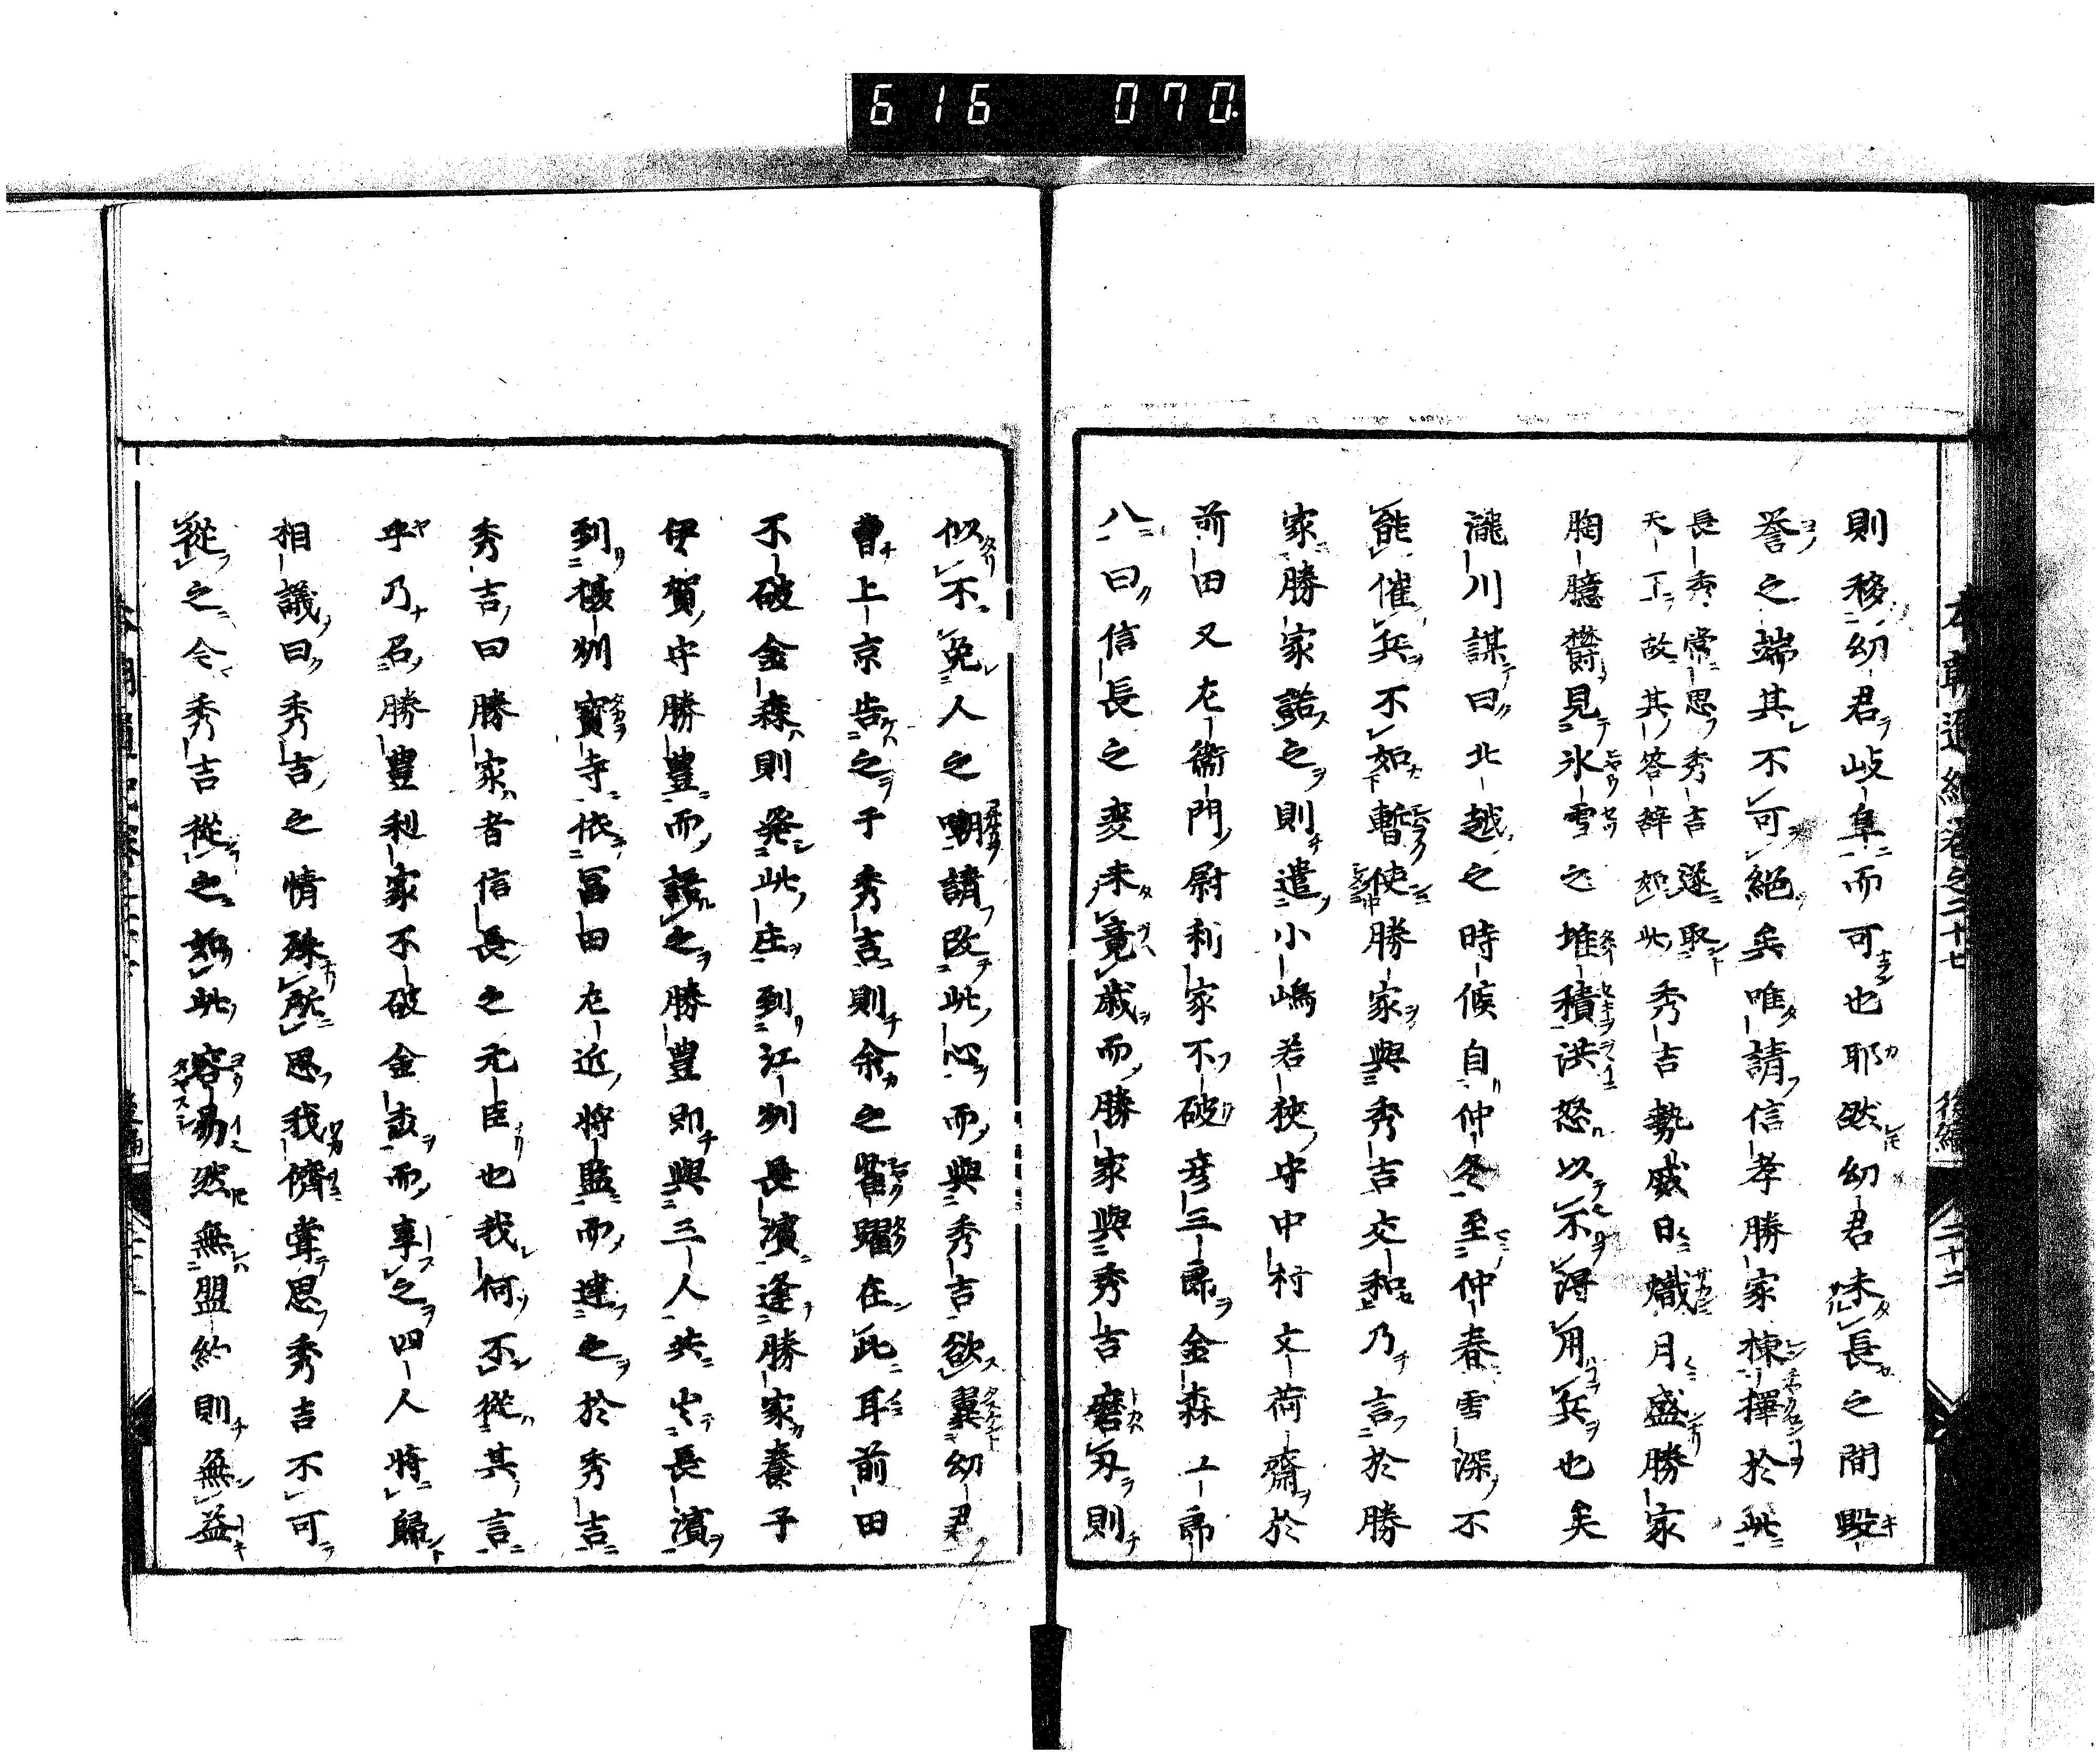 616 070
則移幼君岐阜而可也耶然幼君未長之間毀
誉之端其不可絕矣唯請信孝勝家棟擇於此
長秀常思秀吉遂取
天下故其答辞如此秀吉勢威日熾月盛勝家
胸臆欝見氷雪之堆積洪怒以不得用兵也矣
瀧川謀曰北越之時候自仲冬至仲春雪深不
能催兵不如暫使勝家與秀吉交和乃言於勝
家勝家諾之則遣小嶋若狭守中村文荷齋於
前田又左衞門尉利家不破彦三郎金森五郎
八曰信長之変未竟歳而勝家與秀吉磨刄則
似不免人之嘲請改此心而與秀吉欲翼幼君
曹上京告之于秀吉則余之雀躍在此耳前田
不破金森則発此庄到江刕長濱逢勝家養子
伊賀守勝豊而語之勝豊即與三人共出長濱
到攝刕寳寺依冨田左近將監而達之於秀吉
秀吉曰勝家者信長之元臣也我何不從其言
乎乃召勝豊利家不破金森而享之四人將歸
相議曰秀吉之情殊所恩我儕嘗思秀吉不可
從之今秀吉從之如此容易然無盟約則無益